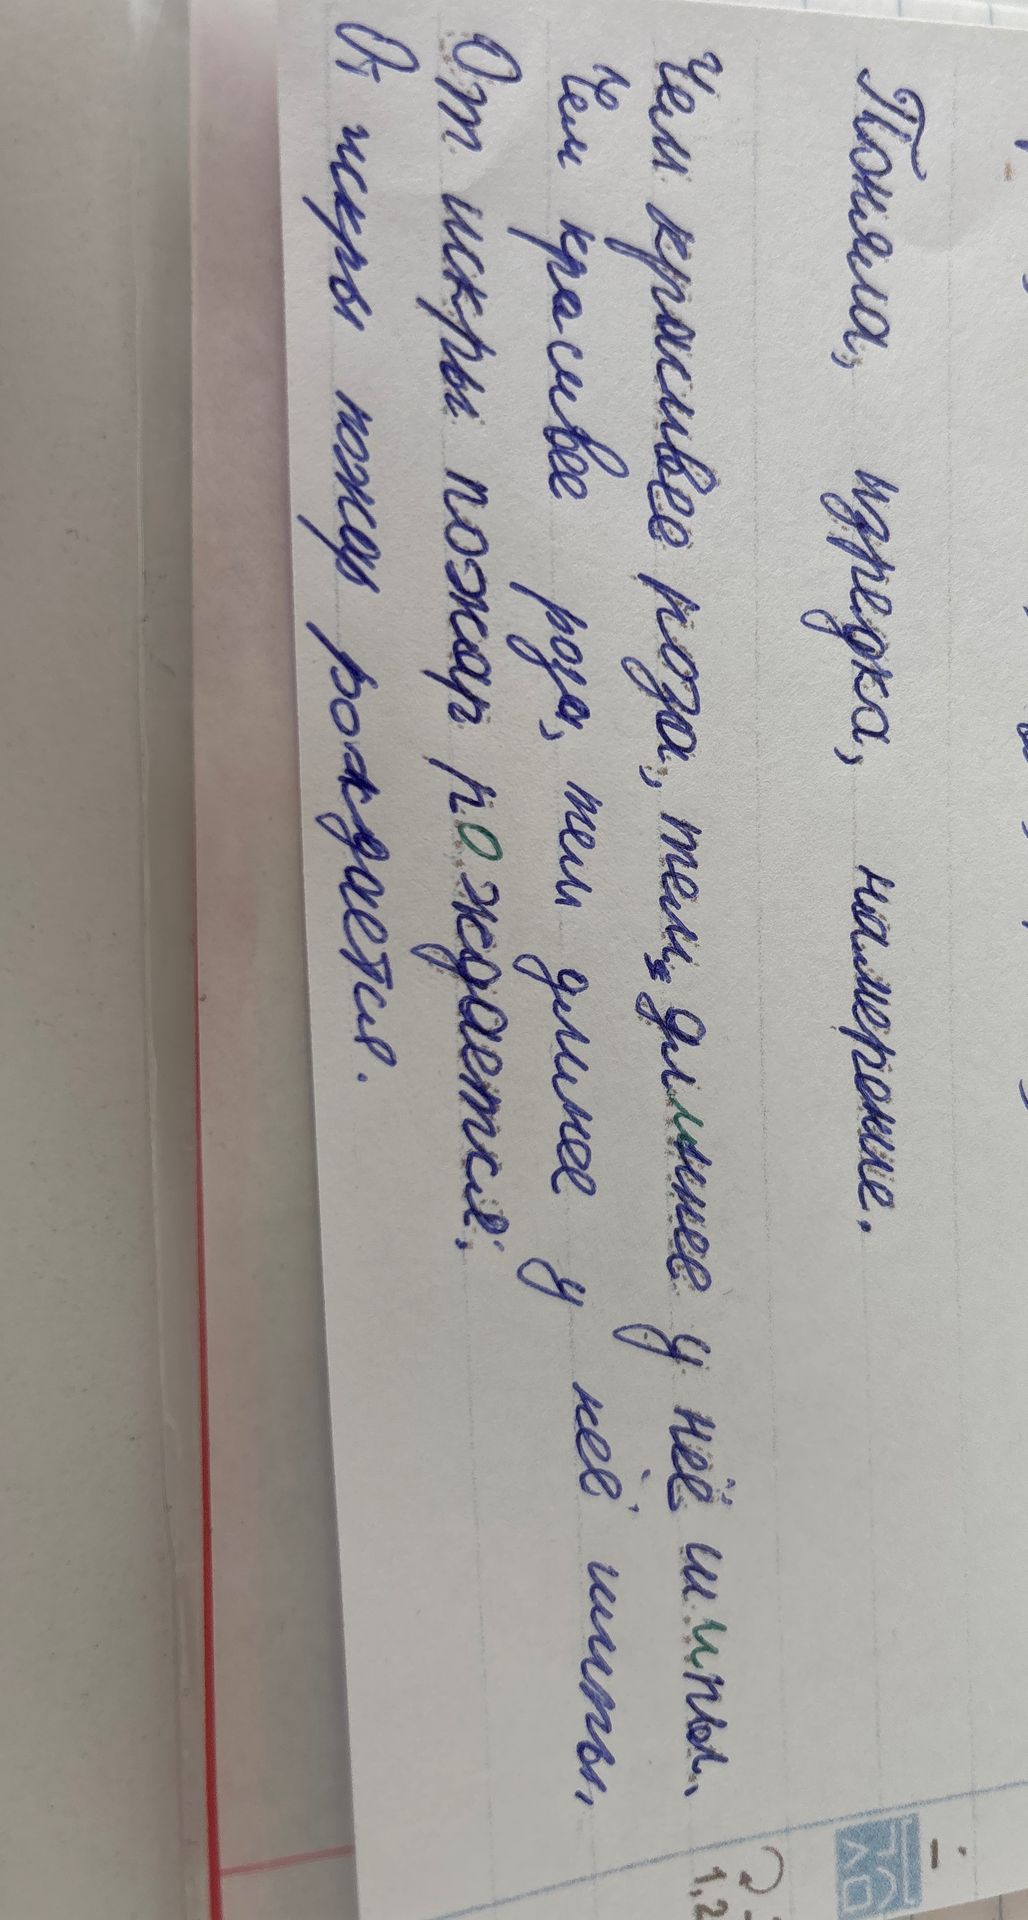 Поняла, изредка, намерение.
Чем красивее роза, тем длиннее у неё шипы.
Чем красивее роза, тем длинее у неё шипы.
От искры пожар рождается.
От искры пожар рождается.
1,2